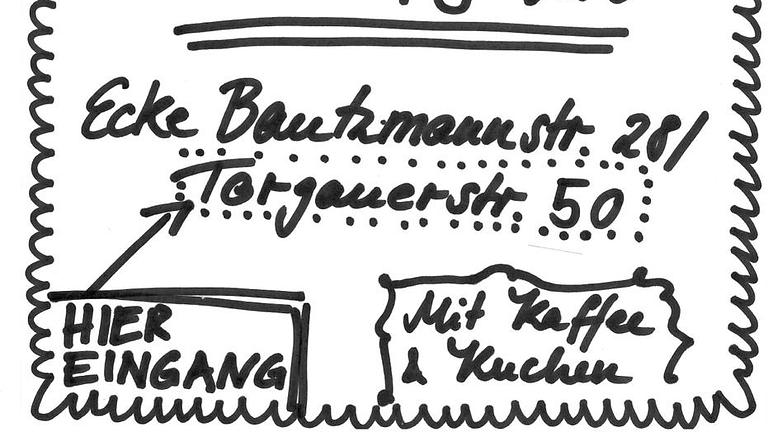 Ecke Bautzmannstr. 28/
Torgauerstr. 50
HIER
EINGANG
Mit Kaffee
& Kuchen